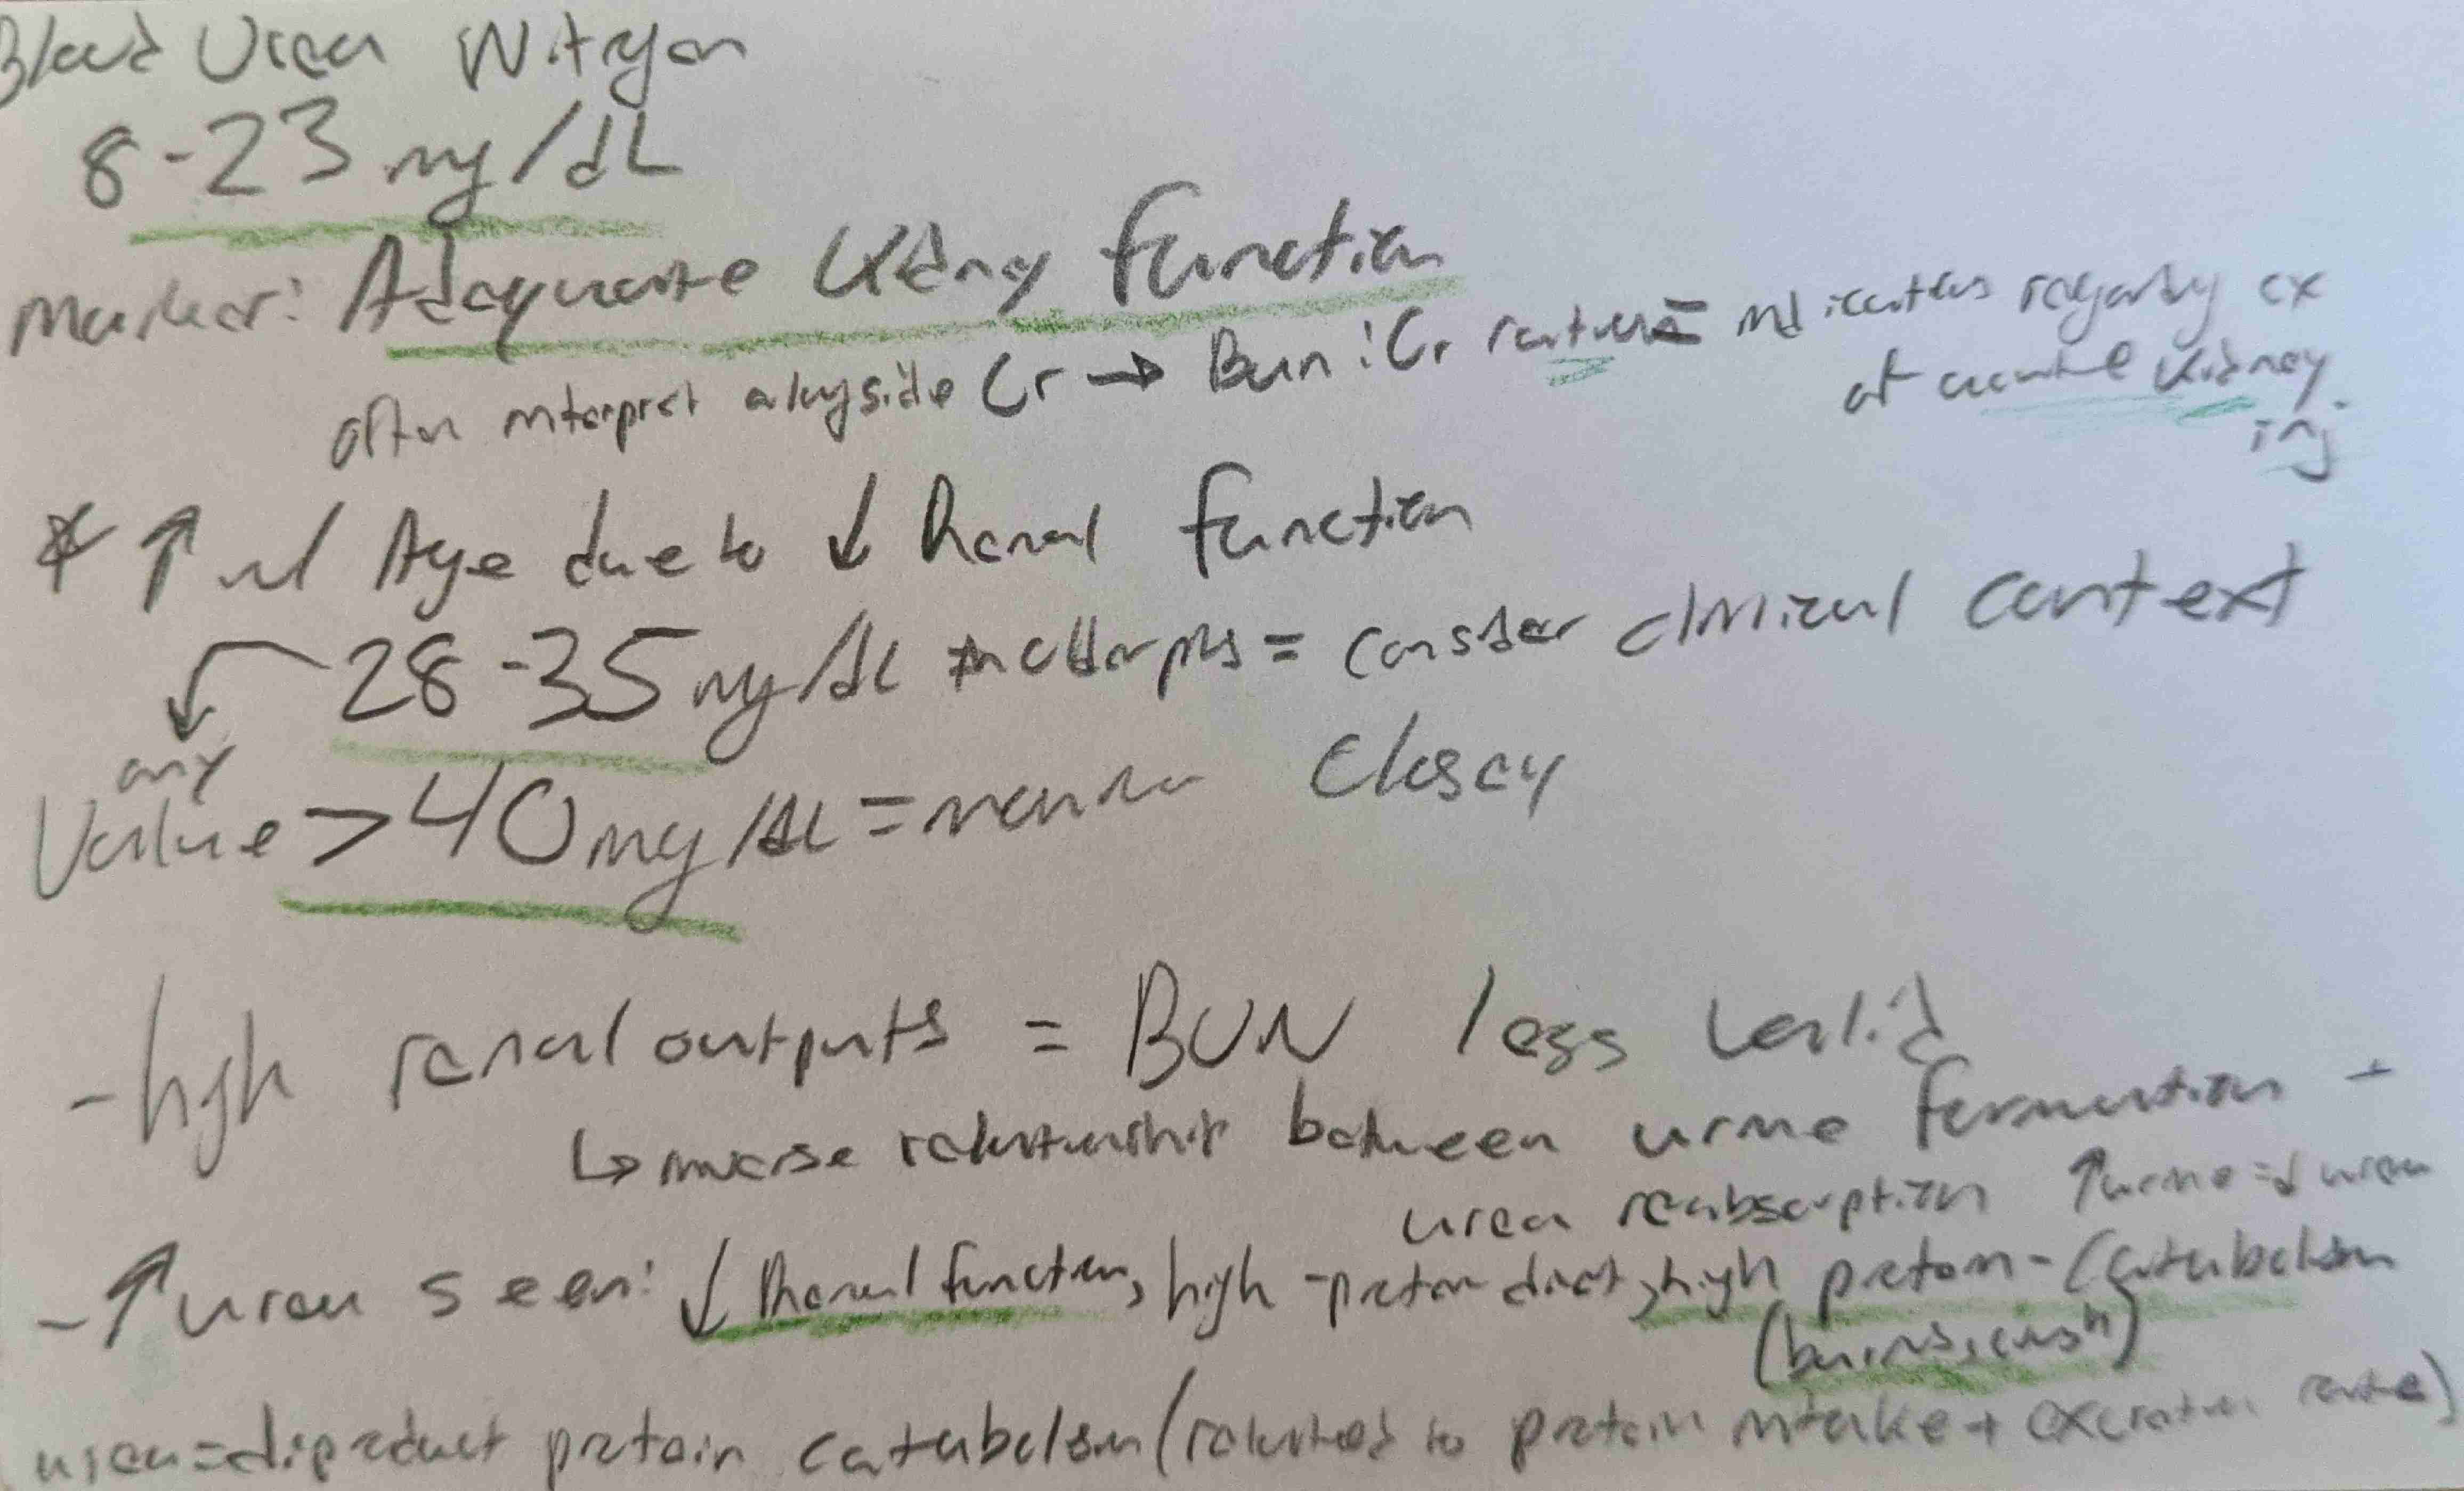 Blood Urea Nitrogen
8-23 mg/dL
Marker: Adequate Kidney function
often interpret alongside Cr → Bun:Cr ratio = indicators regarding ex
of acute kidney
inj
* ↑ w/ Age due to ↓ Renal function
28-35 mg/dL in older pts = consider clinical context
any
Value > 40 mg/dL = monitor closely
- high renal outputs = BUN less valid
↳ inverse relationship between urine formation +
urea reabsorption ↑ urine = ↓ urea
- ↑ urea seen: ↓ Renal function, high-protein diet, high protein-catabolism
(burns, cush)
urea = biproduct protein catabolism (related to protein intake + excretion rate)